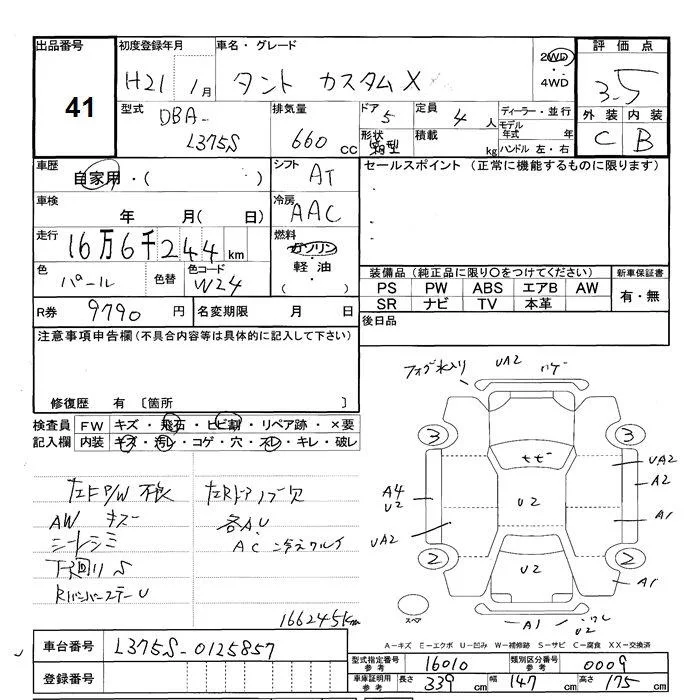 出品番号 初度登録年月 車名・グレード 2WD 評価点
41 H21年1月 タント カスタムX 4WD 3.5
型式 DBA- 排気量 ドア 5 定員 4人 ディーラー・並行 外装 内装
L375S 660cc 形状 箱型 積載 kg モデル年式 年 C B
ハンドル 左・右
車歴 自家用・( ) シフト AT セールスポイント (正常に機能するものに限ります)
車検 年 月( 日) 冷房 AAC
走行 16万6千244km 燃料 ガソリン・軽油・( )
色 パール 色替 色コード W24 装備品(純正品に限り○をつけてください) 新車保証書
PS PW ABS エアB AW 有・無
SR ナビ TV 本革
R券 9790円 名変期限 月 日 後日品
注意事項申告欄(不具合内容等は具体的に記入して下さい)
修復歴 有 〔箇所 〕
検査員 FW キズ・飛石・ヒビ割・リペア跡・×要
記入欄 内装 キズ・汚レ・コゲ・穴・スレ・キレ・破レ
フォグ水入り UA2 ハゲ
3 3
トビ
UA2
A2
A4
U2
U2
A1
UA2
2 2
U2
A1
スペア
A1 ワレ
U2
左FP/W不良 左Rドアノブ欠
AW キズ 各AU
シートシミ AC冷えワルイ
下回りS
RバンパーステーU
166245km
A-キズ E-エクボ U-凹み W-補修跡 S-サビ C-腐食 XX-交換済
車台番号 L375S-0125857 型式指定番号 参考 16010 類別区分番号 参考 0009
登録番号 車庫証明用 参考 長さ 339cm 幅 147cm 高さ 175cm